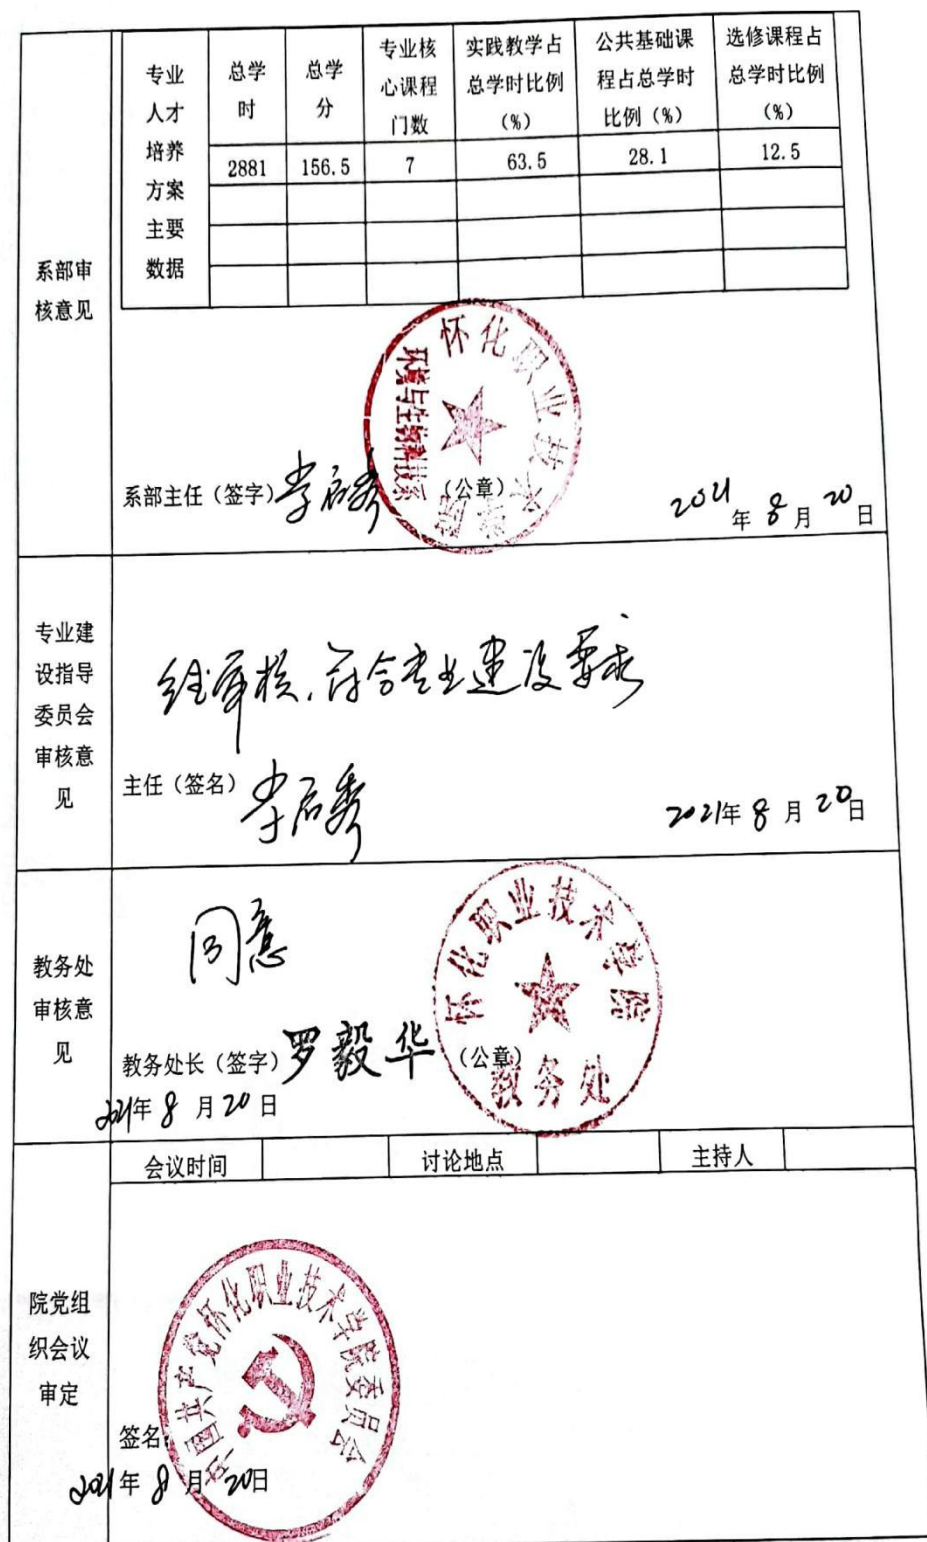 系部审
核意见
专业
人才
培养
方案
主要
数据
总学
时
总学
分
专业核
心课程
门数
实践教学占
总学时比例
(%)
公共基础课
程占总学时
比例(%)
选修课程占
总学时比例
(%)
2881 156.5 7 63.5 28.1 12.5
怀化职业技术学院
环境与生物科技系
系部主任(签字)李启秀 (公章) 2021年8月20日
专业建
设指导
委员会
审核意
见
经审核,符合专业建设要求
主任(签名)李启秀 2021年8月20日
教务处
审核意
见
同意
怀化职业技术学院
教务处
教务处长(签字)罗毅华 (公章)
2021年8月20日
院党组
织会议
审定
会议时间 讨论地点 主持人
中国共产党怀化职业技术学院委员会
签名
2021年8月20日